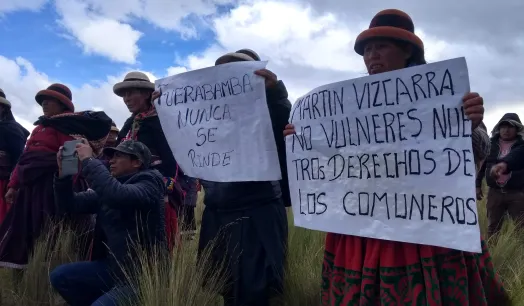 FUERABAMBA
NUNCA
SE
RINDE
MARTIN VIZCARRA
NO VULNERES NUES
TROS DERECHOS DE
LOS COMUNEROS